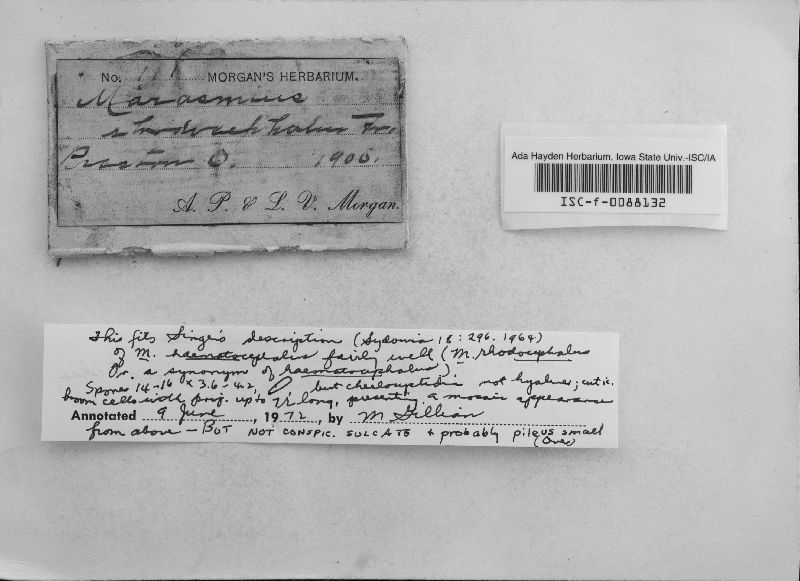 No. MORGAN'S HERBARIUM.
Marasmius
rhodocephalus Fr.
Preston O. 1906.
A. P. & L. V. Morgan.
Ada Hayden Herbarium, Iowa State Univ.-ISC/IA
ISC-f-0088132
This fits Singer's description (Sydowia 18: 296. 1964)
of M. haematocephalus fairly well (M. rhodocephalus
Fr. a synonym of haematocephalus).
Spores 14-16 x 3.6-4.2, but cheilocystidia not hyaline; cutic.
broom cells with proj. up to 7µ long, presenting a mosaic appearance
Annotated 9 June, 1972, by M Gillian
from above - BUT NOT CONSPIC. SULCATE & probably pileus small
(Over)